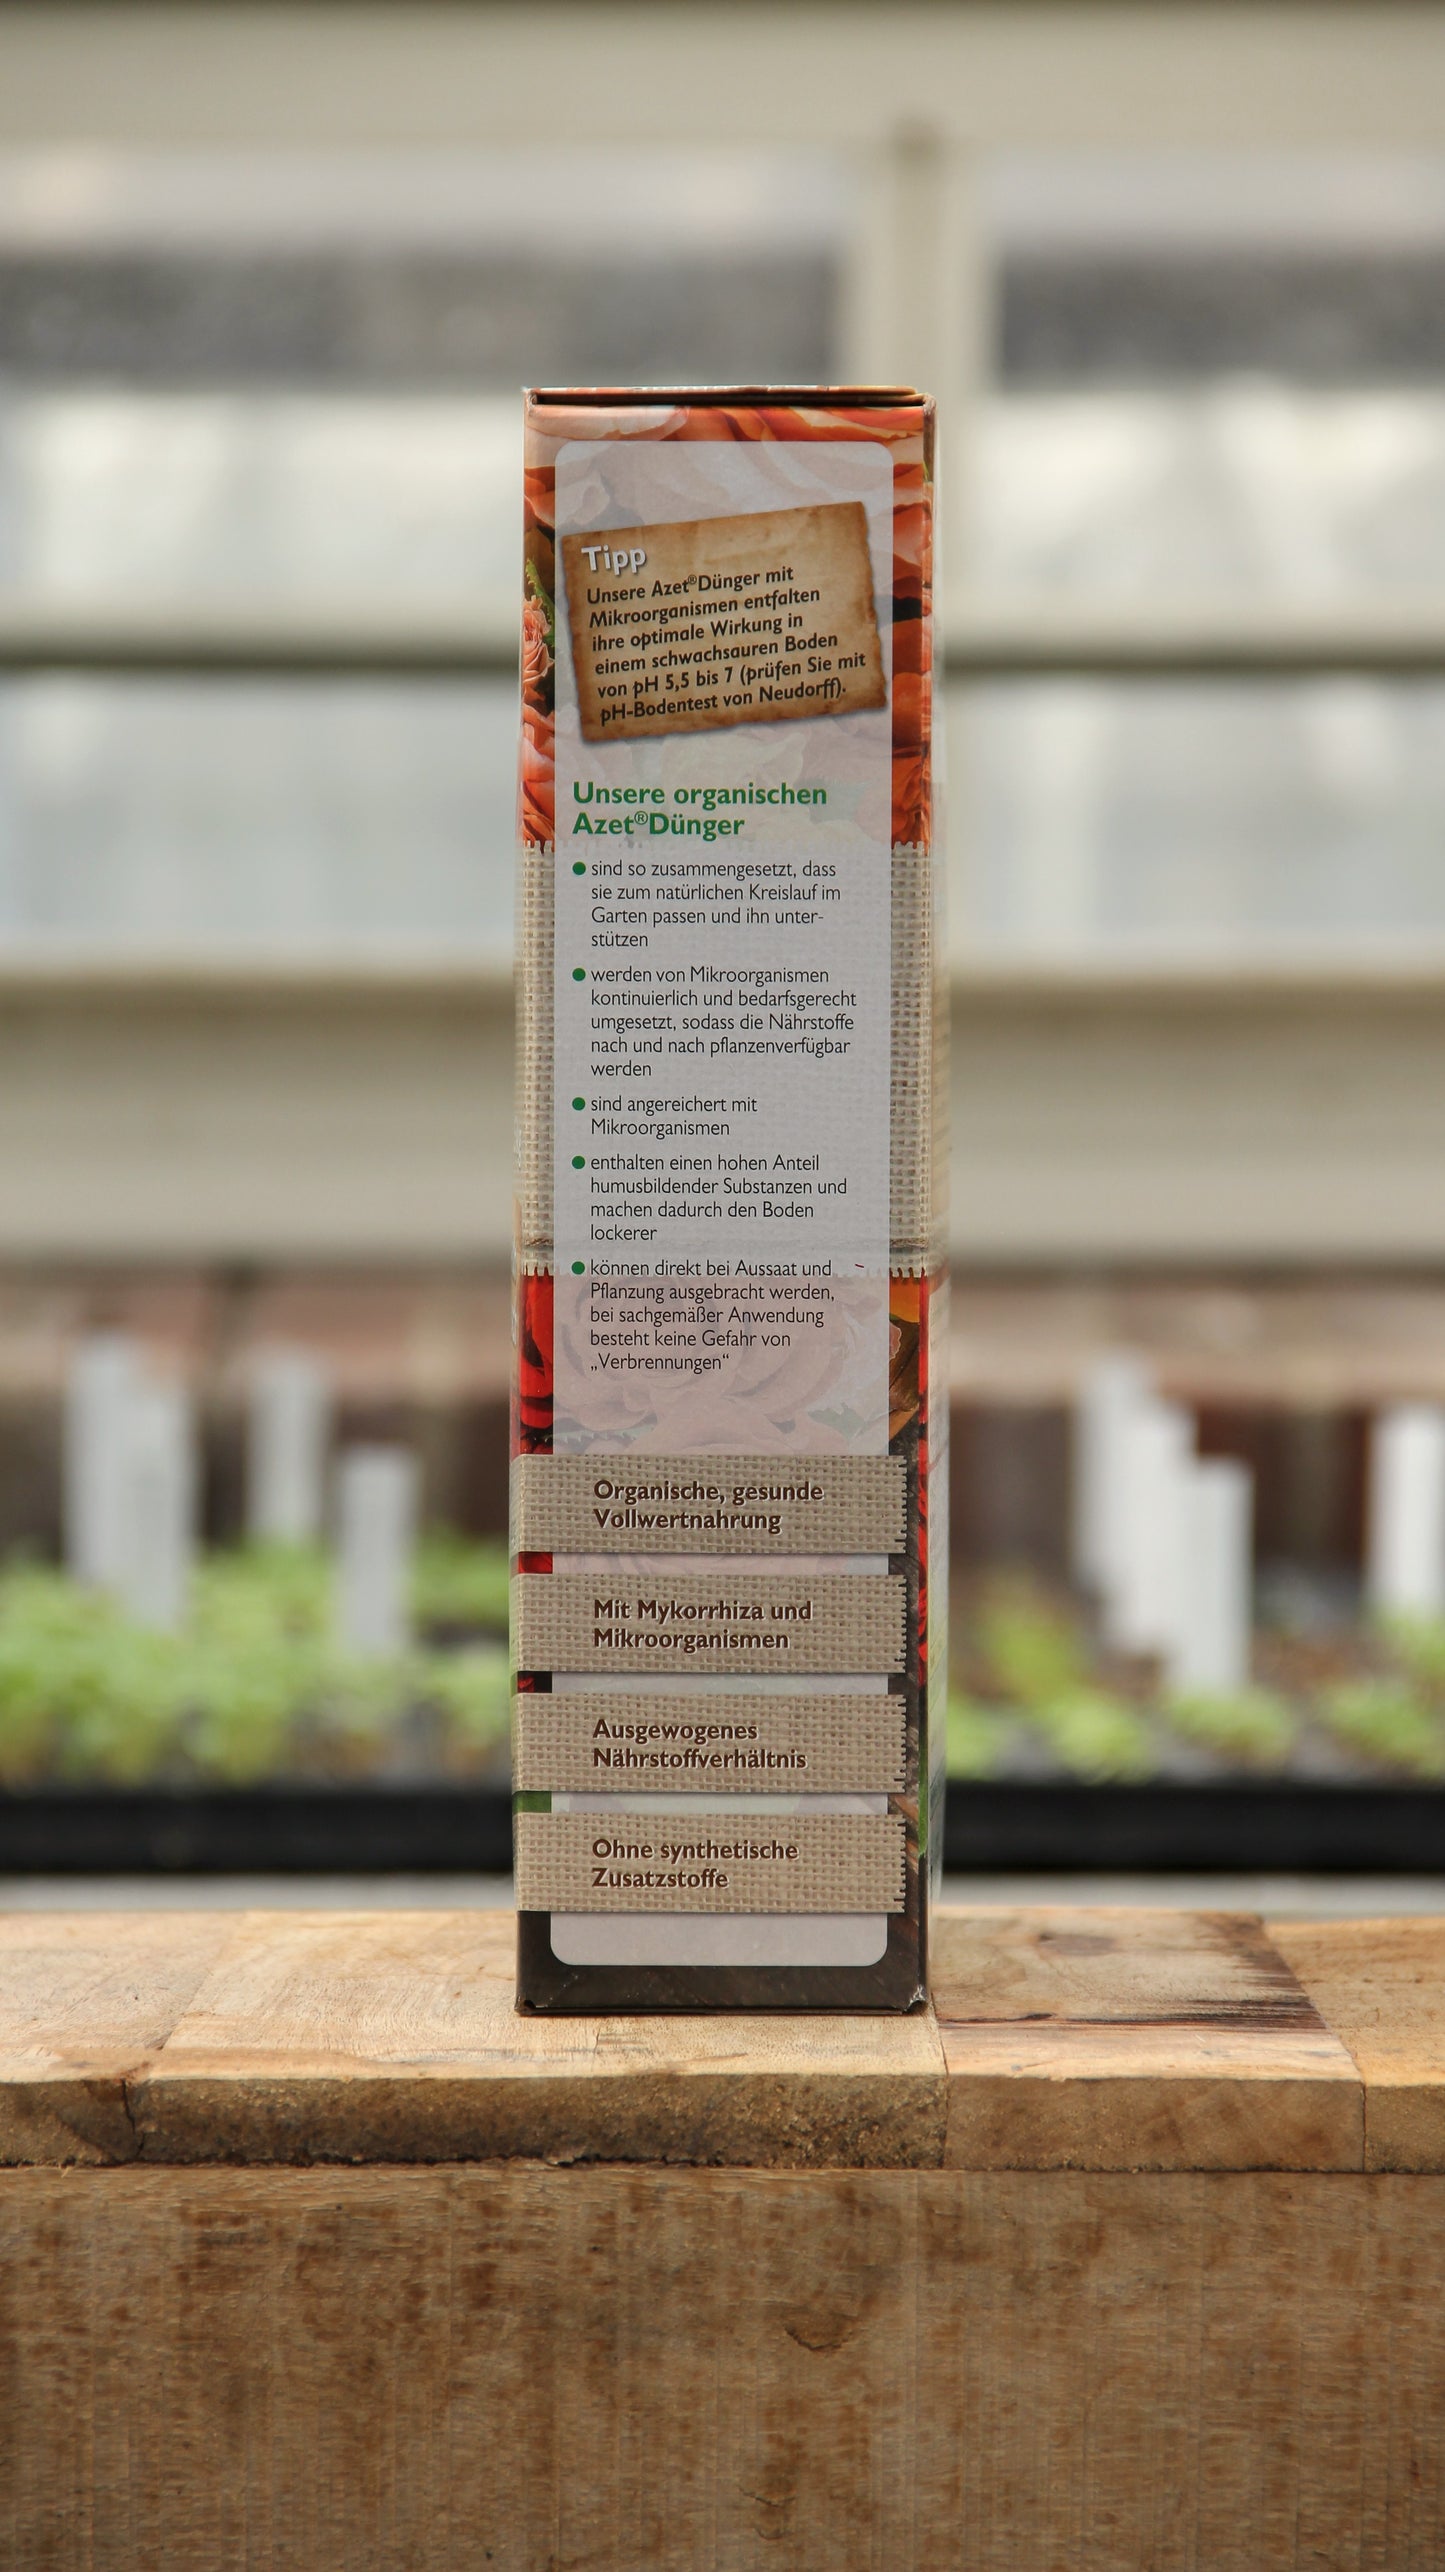 Tipp
Unsere Azet®Dünger mit
Mikroorganismen entfalten
ihre optimale Wirkung in
einem schwachsauren Boden
von pH 5,5 bis 7 (prüfen Sie mit
pH-Bodentest von Neudorff).
Unsere organischen
Azet®Dünger
● sind so zusammengesetzt, dass
sie zum natürlichen Kreislauf im
Garten passen und ihn unter-
stützen
● werden von Mikroorganismen
kontinuierlich und bedarfsgerecht
umgesetzt, sodass die Nährstoffe
nach und nach pflanzenverfügbar
werden
● sind angereichert mit
Mikroorganismen
● enthalten einen hohen Anteil
humusbildender Substanzen und
machen dadurch den Boden
lockerer
● können direkt bei Aussaat und
Pflanzung ausgebracht werden,
bei sachgemäßer Anwendung
besteht keine Gefahr von
„Verbrennungen“
Organische, gesunde
Vollwertnahrung
Mit Mykorrhiza und
Mikroorganismen
Ausgewogenes
Nährstoffverhältnis
Ohne synthetische
Zusatzstoffe